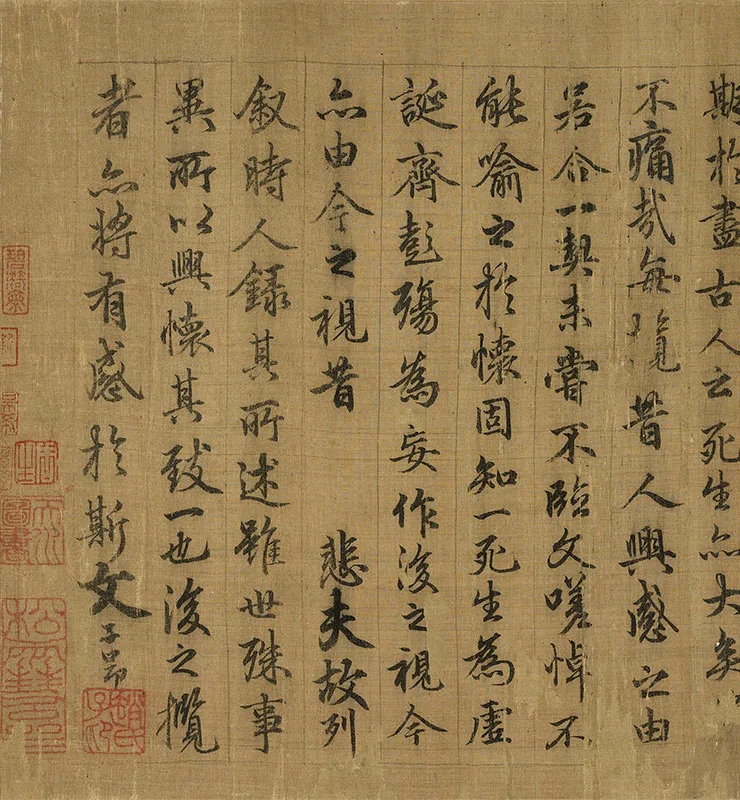 期於盡古人云死生亦大矣
不痛哉每攬昔人興感之由
若合一契未嘗不臨文嗟悼不
能喻之於懷固知一死生為虛
誕齊彭殤為妄作後之視今
亦由今之視昔 悲夫故列
叙時人錄其所述雖世殊事
異所以興懷其致一也後之攬
者亦將有感於斯文 子昂